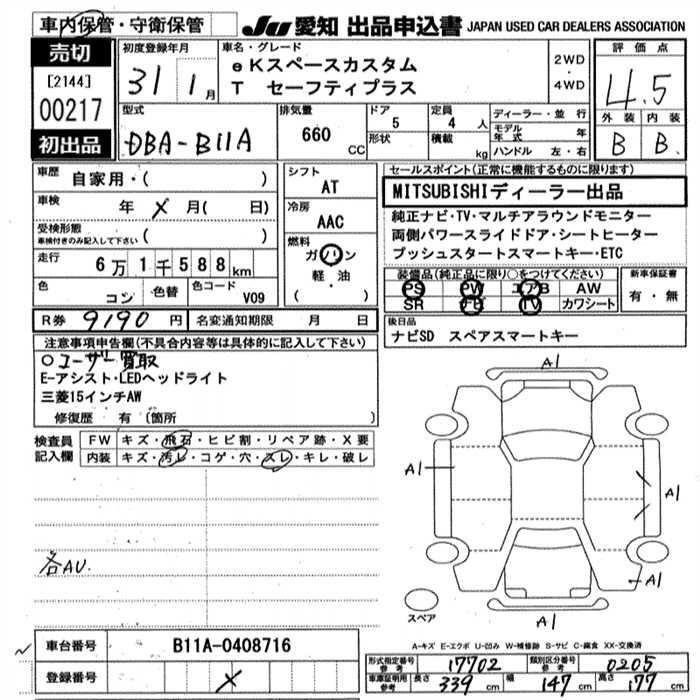 車内保管・守衛保管
JU 愛知 出品申込書 JAPAN USED CAR DEALERS ASSOCIATION
売切
[2144]
00217
初出品
初度登録年月
31 1月
車名・グレード
eKスペースカスタム
T セーフティプラス
2WD
・
4WD
評価点
4.5
外装 内装
B B
型式
DBA-B11A
排気量
660 CC
ドア
5
形状
定員
4 人
積載
kg
ディーラー・並行
モデル年式 年
ハンドル 左・右
車歴 自家用・( )
車検 年 X 月( 日)
受検形態
車検付きのみ記入して下さい ( )
走行 6万1千588km
色 コン 色替 色コード V09
シフト
AT
冷房
AAC
燃料
ガソリン
軽・油
( )
セールスポイント(正常に機能するものに限ります)
MITSUBISHIディーラー出品
純正ナビ・TV・マルチアラウンドモニター
両側パワースライドドア・シートヒーター
プッシュスタートスマートキー・ETC
装備品(純正品に限り○をつけてください)
PS PW エアB AW
SR ナビ TV カワシート
新車保証書
有・無
R券 9190 円 名変通知期限 月 日
後日品
ナビSD スペアスマートキー
注意事項申告欄(不具合内容等は具体的に記入して下さい)
○ユーザー買取
E-アシスト・LEDヘッドライト
三菱15インチAW
修復歴 有 (箇所 )
検査員記入欄
FW キズ・飛石・ヒビ割・リペア跡・X要
内装 キズ・汚レ・コゲ・穴・スレ・キレ・破レ
各AU.
A1
A1
A1
A1
A1
スペア
A-キズ E-エクボ U-凹み W-補修跡 S-サビ C-腐食 XX-交換済
車台番号 B11A-0408716
登録番号 X
形式指定番号 参考 17702 類別区分番号 参考 0205
車庫証明用 参考 長さ 339 cm 幅 147 cm 高さ 177 cm